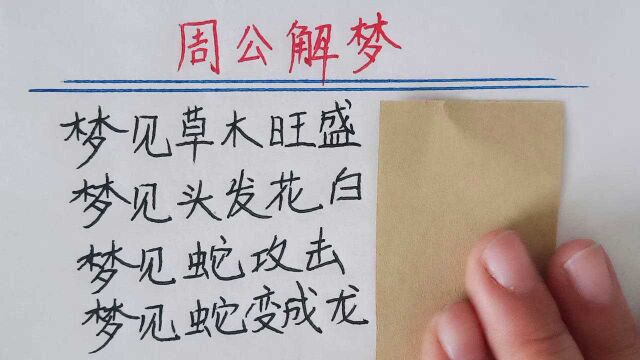 周公解梦
梦见草木旺盛
梦见头发花白
梦见蛇攻击
梦见蛇变成龙